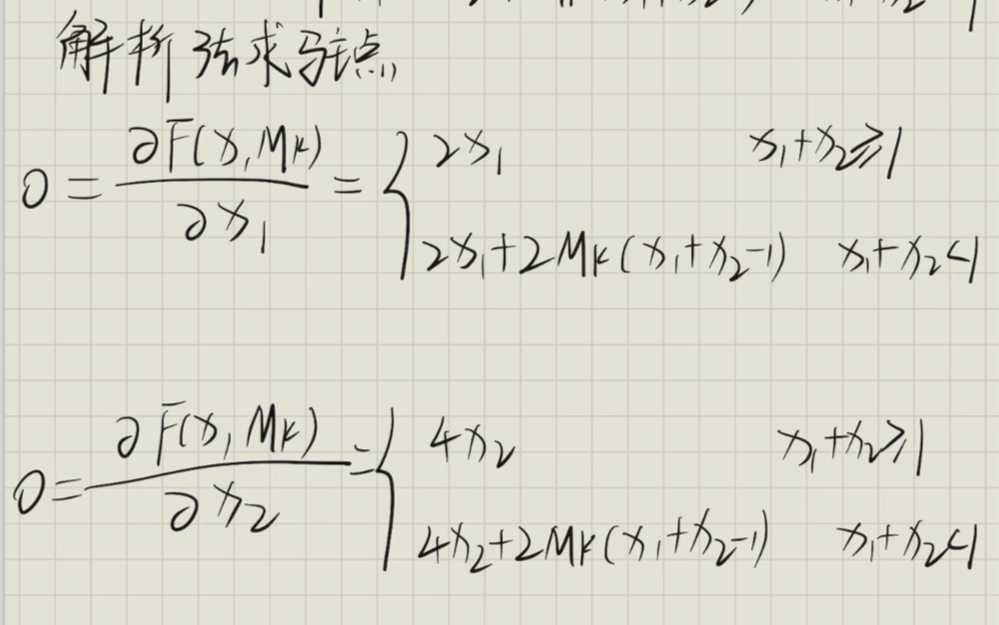 解析法求驻点
0 = ∂F̄(x, Mk) / ∂x₁ = { 2x₁ x₁+x₂≥1
2x₁+2Mk(x₁+x₂-1) x₁+x₂<1
0 = ∂F̄(x, Mk) / ∂x₂ = { 4x₂ x₁+x₂≥1
4x₂+2Mk(x₁+x₂-1) x₁+x₂<1